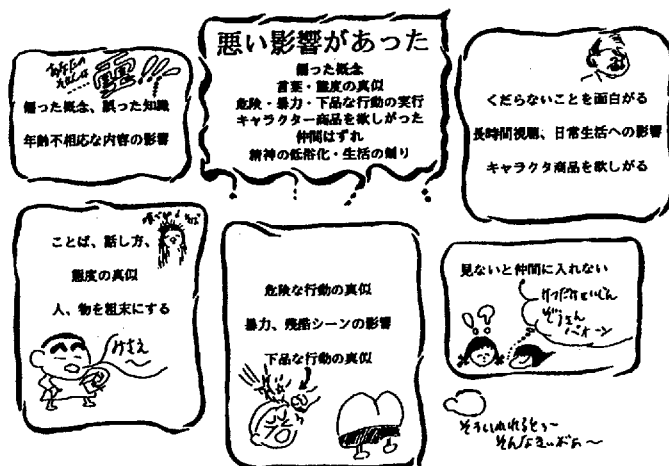 悪い影響があった
偏った概念
言葉・態度の真似
危険・暴力・下品な行動の実行
キャラクター商品を欲しがった
仲間はずれ
精神の低俗化・生活の制り
偏った概念、誤った知識
年齢不相応な内容の影響
くだらないことを面白がる
長時間視聴、日常生活への影響
キャラクタ商品を欲しがる
ことば、話し方、
態度の真似
人、物を粗末にする
みさえ
危険な行動の真似
暴力、残酷シーンの影響
下品な行動の真似
見ないと仲間に入れない
ぞうさん
そういわれるとぅ〜